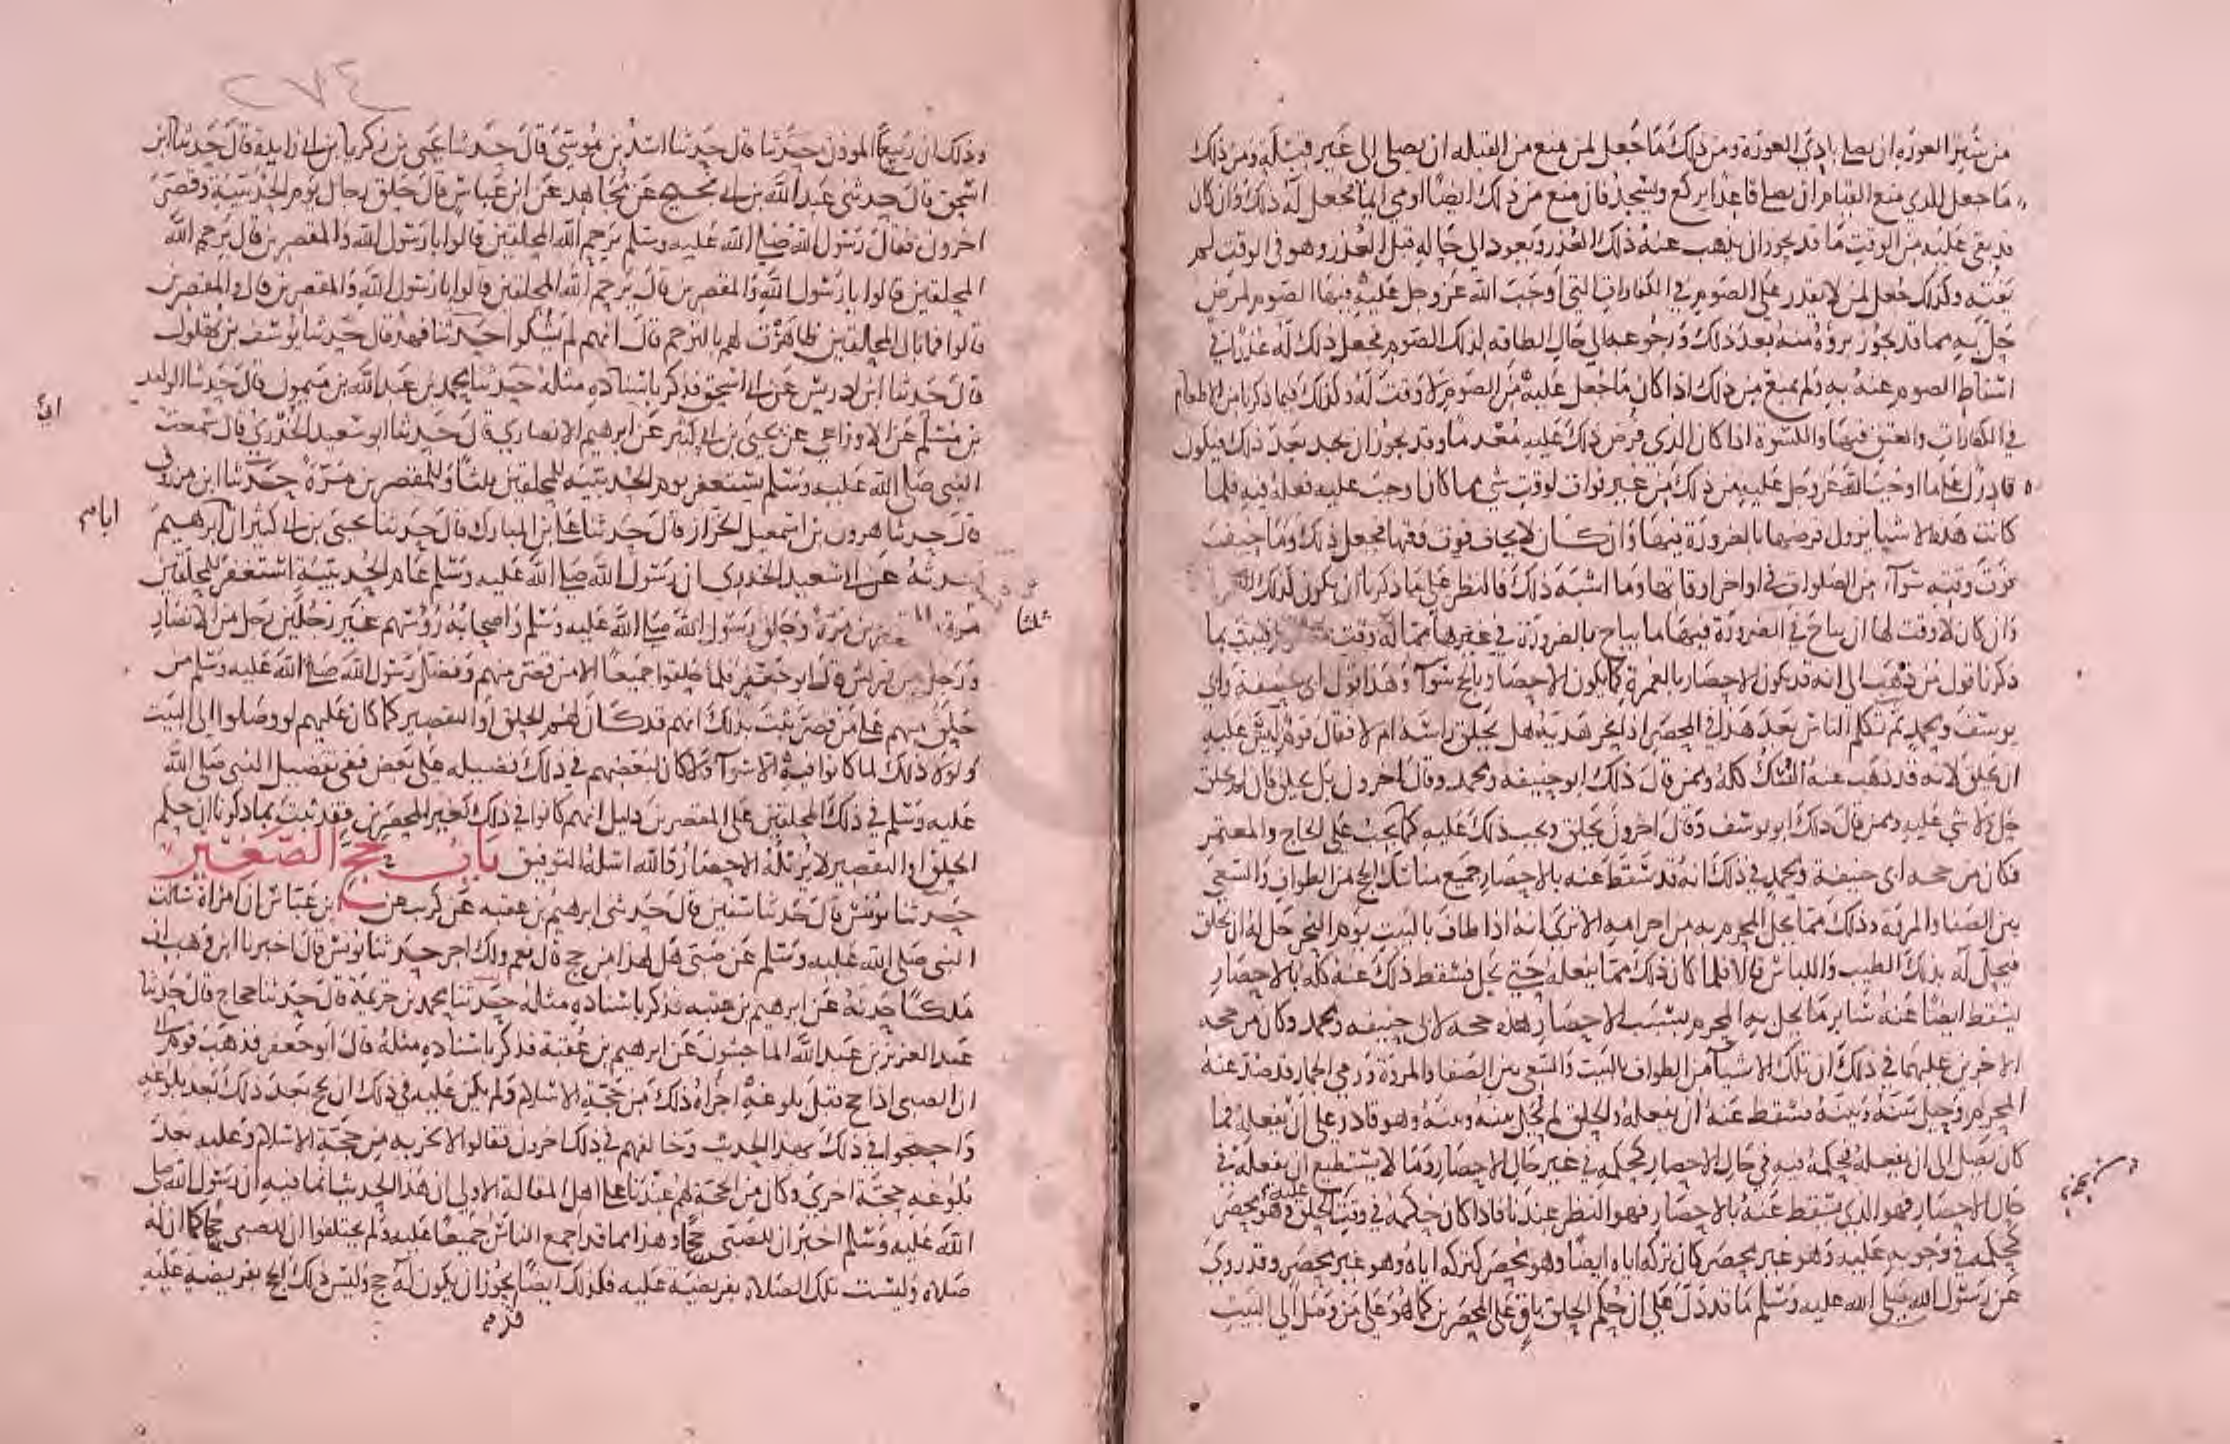 من ستر العورة ان يصلي بادي العورة ومن ذلك ما جعل لمن منع من القبلة ان يصلي الى غير قبلة ومن ذلك
ما جعل للذي منع القيام ان يصلي قاعدا يركع ويسجد فان منع من ذلك ايضا اومى ايماء فجعل له ذلك وان كان
قد بقي عليه من الوقت ما قد يجوز ان يذهب عنه ذلك العذر ويعود الى حاله قبل العذر وهو في الوقت لم
يفته وكذلك جعل لمن لا يقدر على الصوم في الكفارات التي اوجب الله عز وجل عليه فيها الصوم لمرض
حل به مما قد يجوز بروه منه بعد ذلك ورجوعه الى حال الطاقة لذلك الصوم فجعل ذلك له عذرا في
اسقاط الصوم عنه به ولم يمنع من ذلك اذا كان ما جعل عليه من الصوم لا وقت له وكذلك فيما ذكرنا من الاطعام
في الكفارات والعتق فيها والكسوة اذا كان الذي فرض ذلك عليه معدما وقد يجوز ان يجد بعد ذلك فيكون
قادرا على ما اوجب الله عز وجل عليه من ذلك من غير فوات لوقت شي مما كان وجب عليه فعله فيه فلما
كانت هذه الاشيا يزول فرضها بالضرورة فيها وان كان لا يخاف فوت وقتها فجعل ذلك وما خيف
فوت وقته سواء من الصلوات في اواخر اوقاتها وما اشبه ذلك فالنظر على ما ذكرنا ان يكون كذلك
وان كان لا وقت لها ان يباح في الضرورة فيها ما يباح بالضرورة في غيرها مما له وقت فثبت بما
ذكرنا قول من ذهب الى انه قد يكون الاحصار بالعمرة كما يكون الاحصار بالحج سواء وهذا قول ابي حنيفة وابي
يوسف ومحمد ثم تكلم الناس بعد هذا في المحصر اذا نحر هديه هل يحلق راسه ام لا فقال قوم ليس عليه
ان يحلق لانه قد ذهب عنه النسك كله وممن قال ذلك ابو حنيفة ومحمد وقال اخرون بل يحلق فان لم يحلق
حل ولا شي عليه وممن قال ذلك ابو يوسف وقال اخرون يحلق ويجب ذلك عليه كما يجب على الحاج والمعتمر
فكان من حجة ابي حنيفة ومحمد في ذلك انه قد سقط عنه بالاحصار جميع مناسك الحج من الطواف والسعي
بين الصفا والمروة وذلك مما يحل المحرم به من احرامه الا ترى انه اذا طاف بالبيت يوم النحر حل له ان يحلق
فيحل له بذلك الطيب واللباس قالا فلما كان ذلك مما يفعله حتى يحل فسقط ذلك عنه كله بالاحصار
سقط ايضا عنه سائر ما يحل به المحرم بسبب الاحصار هذه حجة لابي حنيفة ومحمد وكان من حجة
الاخرين عليهما في ذلك ان تلك الاشيا من الطواف بالبيت والسعي بين الصفا والمروة ورمي الجمار قد صد عنه
المحرم وحيل بينه وبينه فسقط عنه ان يفعله والحلق لم يحل بينه وبينه وهو قادر على ان يفعله فما
كان يصل الى ان يفعله فحكمه فيه في حال الاحصار كحكمه في غير حال الاحصار وما لا يستطيع ان يفعله في
حال الاحصار فهو الذي يسقط عنه بالاحصار فهو النظر عندنا فاذا كان حكمه في وقت الحلق عليه وهو محصر
كحكمه في وجوبه عليه وهو غير محصر كان تركه اياه ايضا وهو محصر كتركه اياه وهو غير محصر وقد روي
عن رسول الله صلى الله عليه وسلم ما قد دل على ان حكم الحلق باق على المحصرين كما هو على من وصل الى البيت
٢٧٤
وذلك ان ربيعا الموذن حدثنا قال حدثنا اسد بن موسى قال حدثنا يحيى بن زكريا بن ابي زايدة قال حدثنا ابن
اسحق قال حدثني عبد الله بن ابي نجيح عن مجاهد عن ابن عباس قال حلق رجال يوم الحديبية وقصر
اخرون فقال رسول الله صلى الله عليه وسلم يرحم الله المحلقين قالوا يا رسول الله والمقصرين قال يرحم الله
المحلقين قالوا يا رسول الله والمقصرين قال يرحم الله المحلقين قالوا يا رسول الله والمقصرين قال والمقصرين
قالوا فما بال المحلقين ظاهرت لهم بالترحم قال انهم لم يشكوا حدثنا فهد قال حدثنا يوسف بن بهلول
قال حدثنا ابن ادريس عن ابن اسحق فذكر باسناده مثله حدثنا محمد بن عبد الله بن ميمون قال حدثنا الوليد
بن مسلم عن الاوزاعي عن يحيى بن ابي كثير عن ابرهيم الانصاري قال حدثنا ابو سعيد الخدري قال سمعت
النبي صلى الله عليه وسلم يستغفر يوم الحديبية للمحلقين ثلثا وللمقصرين مرة حدثنا ابن مرزوق
قال حدثنا هرون بن اسمعيل الخزاز قال حدثنا علي بن المبارك قال حدثنا يحيى بن ابي كثير ان ابا ابرهيم
حدثه عن ابي سعيد الخدري ان رسول الله صلى الله عليه وسلم عام الحديبية استغفر للمحلقين
مرة وللمقصرين مرة وحلق رسول الله صلى الله عليه وسلم واصحابه رؤسهم غير رجلين رجل من الانصار
ورجل من قريش قال ابو جعفر فلما حلقوا جميعا الا من قصر منهم وفضل رسول الله صلى الله عليه وسلم من
حلق منهم على من قصر ثبت بذلك انهم قد كان لهم الحلق او التقصير كما كان عليهم لو وصلوا الى البيت
ولولا ذلك لما كانوا فيه الا سواء ولا كان لبعضهم في ذلك فضيلة على بعض ففي تفضيل النبي صلى الله
عليه وسلم في ذلك المحلقين على المقصرين دليل انهم كانوا في ذلك كغير المحصرين فقد ثبت بما ذكرنا ان حكم
الحلق او التقصير لا يزيله الاحصار والله اسئله التوفيق باب حج الصغير
حدثنا يونس قال حدثنا سفين قال حدثني ابرهيم بن عقبة عن كريب عن ابن عباس ان امراة سالت
النبي صلى الله عليه وسلم عن صبي هل لهذا من حج قال نعم ولك اجر حدثنا يونس قال اخبرنا ابن وهب ان
ملكا حدثه عن ابرهيم بن عقبة فذكر باسناده مثله حدثنا محمد بن خزيمة قال حدثنا حجاج قال حدثنا
عبد العزيز بن عبد الله الماجشون عن ابرهيم بن عقبة فذكر باسناده مثله قال ابو جعفر فذهب قوم الى
ان الصبي اذا حج قبل بلوغه اجزاه ذلك من حجة الاسلام ولم يكن عليه في ذلك ان يحج بعد ذلك بعد بلوغه
واحتجوا في ذلك بهذا الحديث وخالفهم في ذلك اخرون فقالوا لا يجزيه من حجة الاسلام وعليه بعد
بلوغه حجة اخرى وكان من الحجة لهم عندنا على اهل المقالة الاولى ان هذا الحديث انما فيه ان رسول الله صلى
الله عليه وسلم اخبر ان للصبي حجا وهذا مما قد اجمع الناس جميعا عليه ولم يختلفوا ان للصبي حجا كما ان له
صلاة وليست تلك الصلاة بفريضة عليه فكذلك ايضا يجوز ان يكون له حج وليس ذلك الحج بفريضة عليه